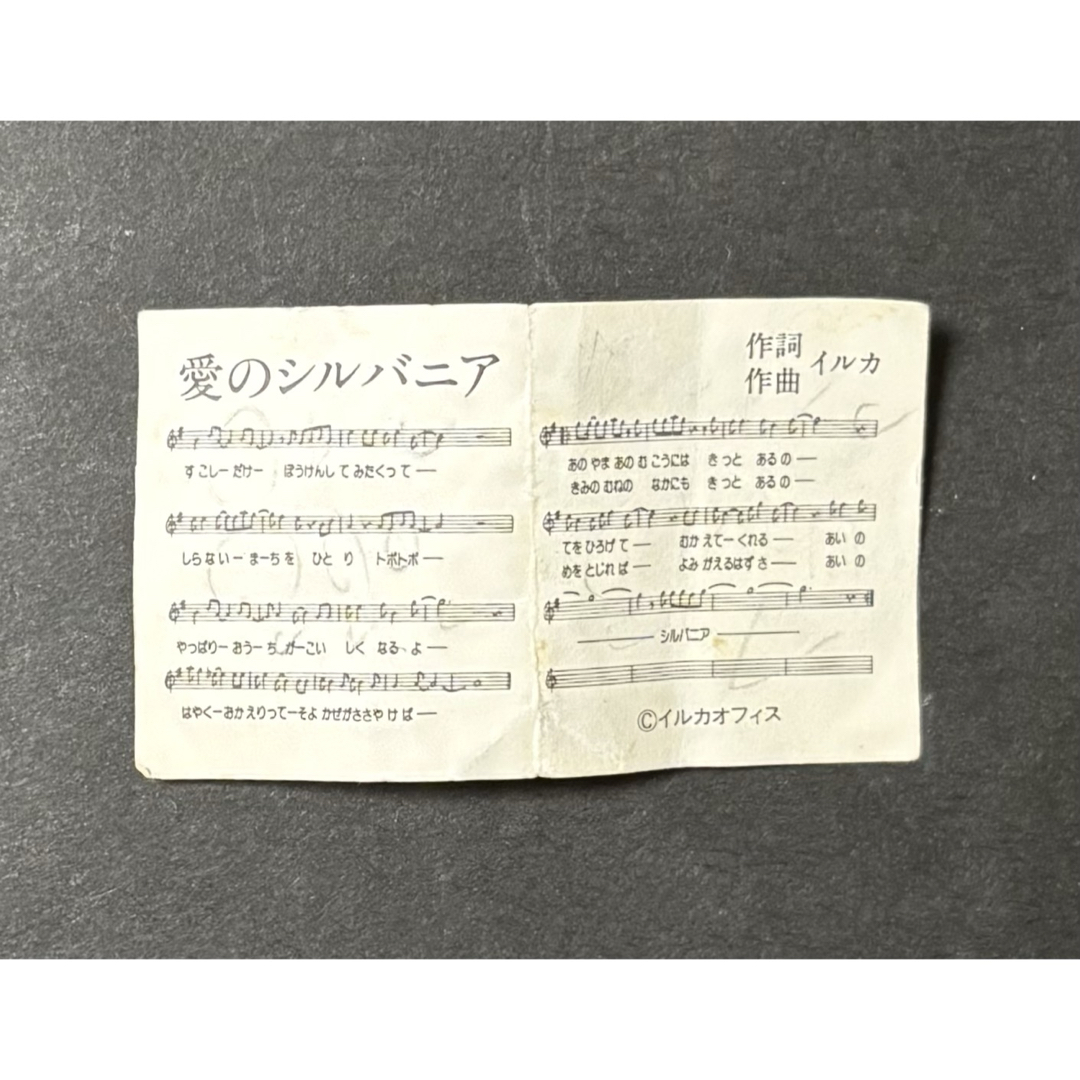 愛のシルバニア
すこしーだけー ぼうけんしてみたくってー
しらないーまーちを ひとり トボトボー
やっぱりーおうーちがーこいしく なるよー
はやくーおかえりってーそよかぜがささやけばー
作詞
作曲 イルカ
あのやまあのむこうには きっと あるのー
きみのむねの なかにも きっと あるのー
てをひろげてー むかえてーくれるー あいの
めをとじればー よみがえるはずさー あいの
ー シルバニア ー
©イルカオフィス